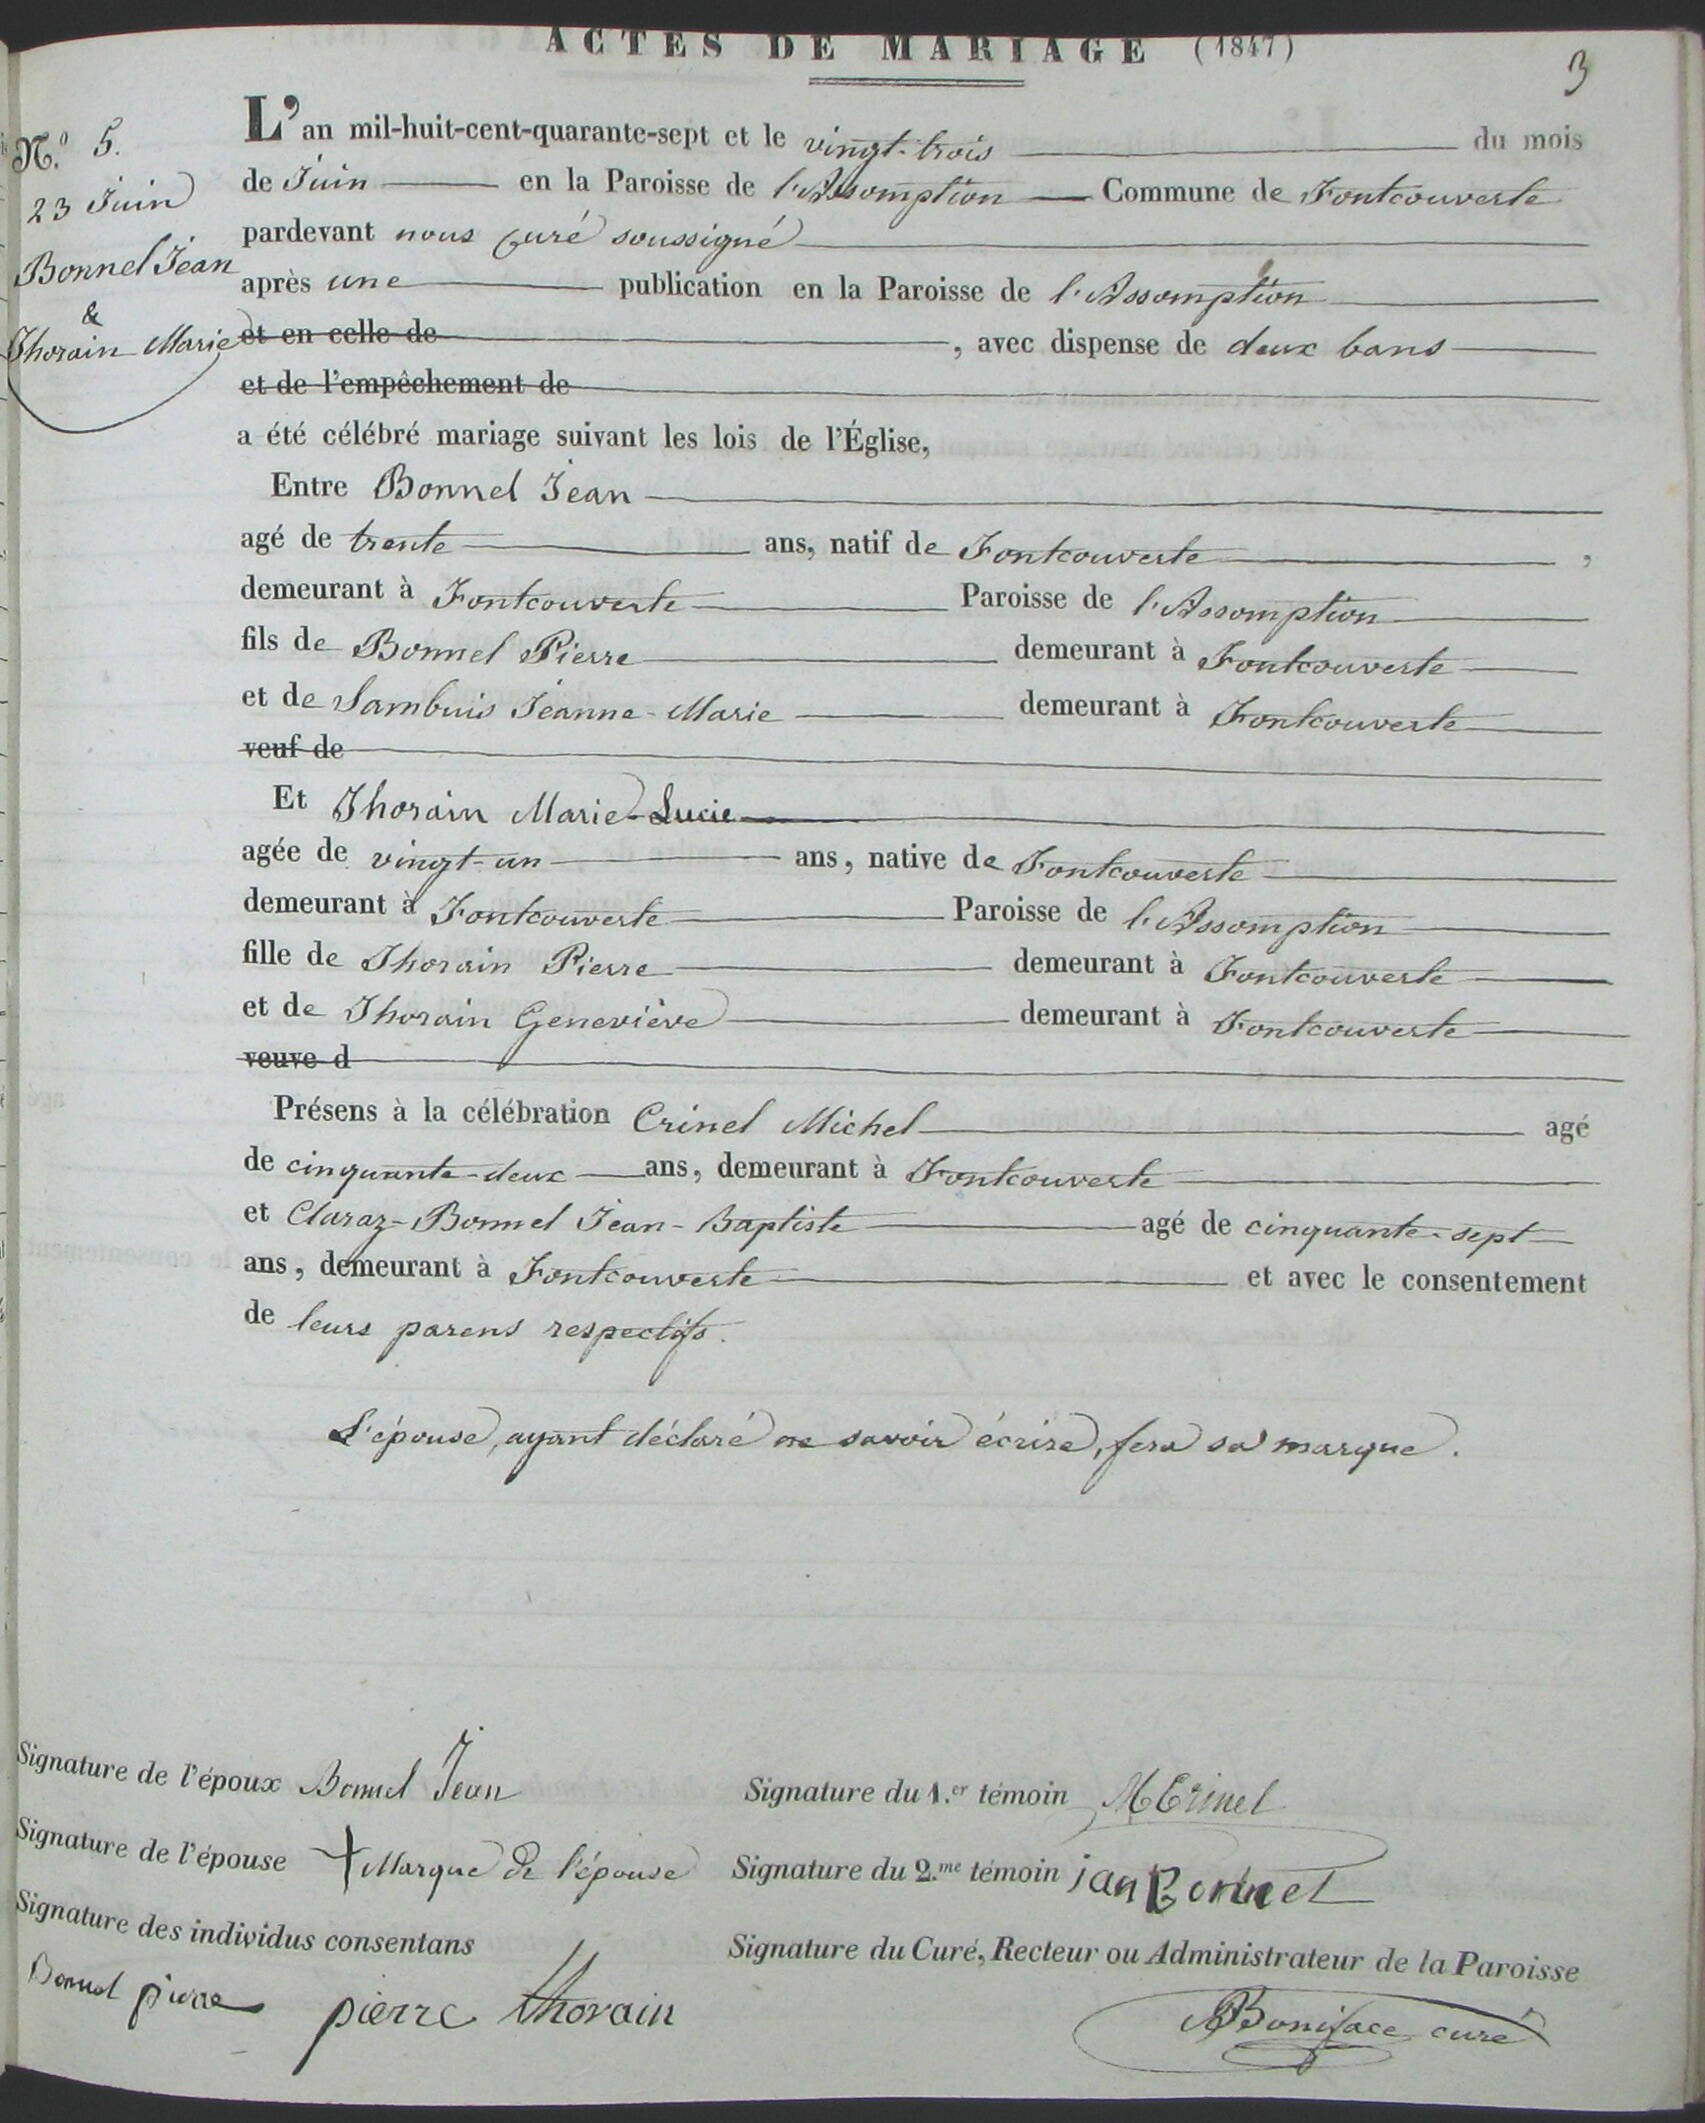 ACTES DE MARIAGE (1847)
3
N.º 5.
23 Juin
Bonnel Jean
&
Thorain Marie
L'an mil-huit-cent-quarante-sept et le vingt-trois du mois
de Juin en la Paroisse de l'Assomption Commune de Fontcouverte
pardevant nous curé soussigné
après une publication en la Paroisse de l'Assomption
et en celle de , avec dispense de deux bans
et de l'empêchement de
a été célébré mariage suivant les lois de l'Église,
Entre Bonnel Jean
agé de trente ans, natif de Fontcouverte ,
demeurant à Fontcouverte Paroisse de l'Assomption
fils de Bonnel Pierre demeurant à Fontcouverte
et de Sambuis Jeanne-Marie demeurant à Fontcouverte
veuf de
Et Thorain Marie-Lucie
agée de vingt-un ans, native de Fontcouverte
demeurant à Fontcouverte Paroisse de l'Assomption
fille de Thorain Pierre demeurant à Fontcouverte
et de Thorain Geneviève demeurant à Fontcouverte
veuve d
Présens à la célébration Crinel Michel agé
de cinquante-deux ans, demeurant à Fontcouverte
et Claraz-Bonnel Jean-Baptiste agé de cinquante-sept
ans, demeurant à Fontcouverte et avec le consentement
de leurs parens respectifs.
L'épouse, ayant déclaré ne savoir écrire, fera sa marque.
Signature de l'époux Bonnel Jean
Signature du 1.er témoin M Crinel
Signature de l'épouse + Marque de l'épouse
Signature du 2.me témoin jan Bonnel
Signature des individus consentans
Bonnel pierre pierre thorain
Signature du Curé, Recteur ou Administrateur de la Paroisse
Boniface curé